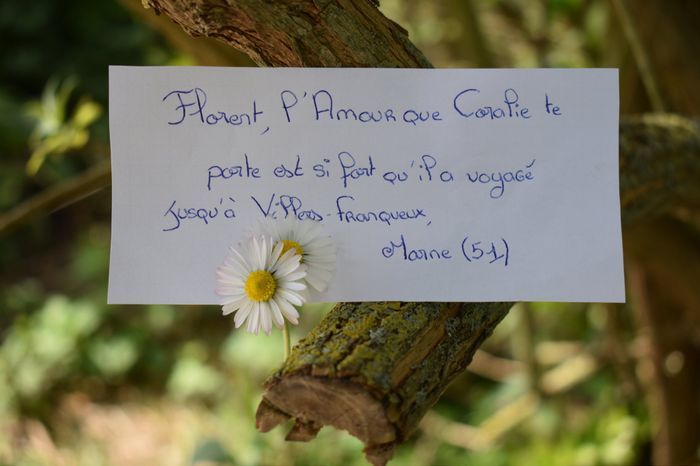 Florent, l'Amour que Coralie te
porte est si fort qu'il a voyagé
jusqu'à Villers-Franqueux,
Marne (51)